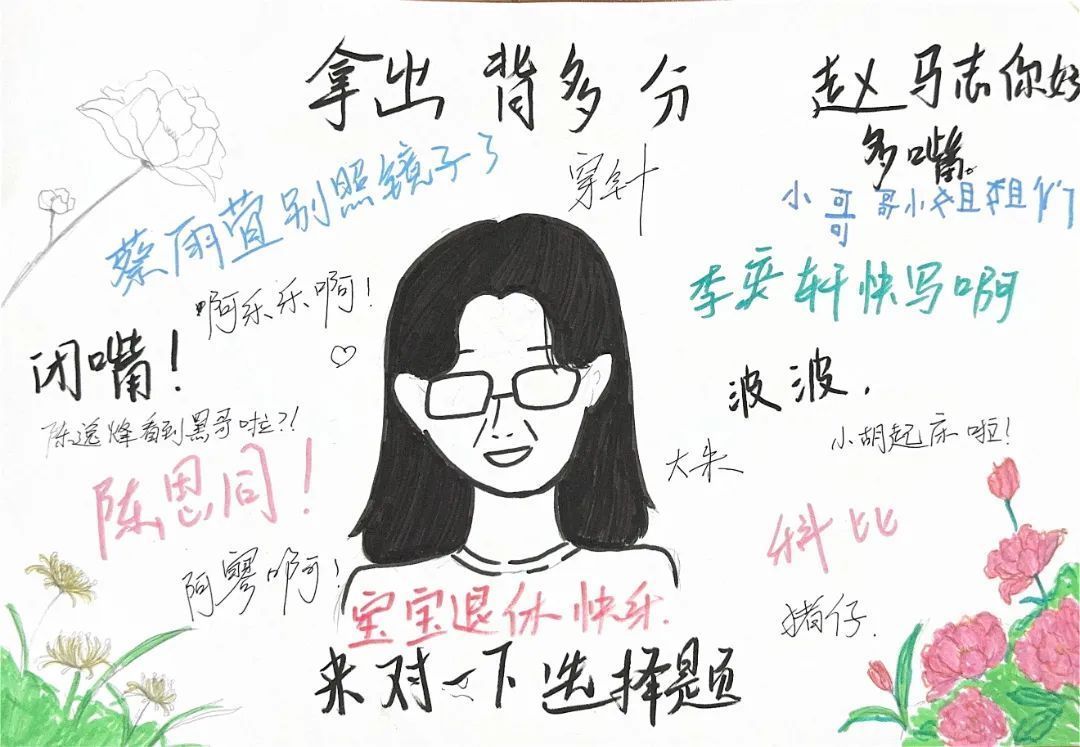 拿出背多分
赵马志你好
多嘴。
穿针
小哥哥小姐姐们
蔡雨萱别照镜子了
啊乐乐啊!
李奕轩快写啊
闭嘴!
波波,
陈逸烽看到黑哥啦?!
小胡起床啦!
大朱
陈恩同!
科比
阿粤啊!
猪仔.
宝宝退休快乐.
来对一下选择题